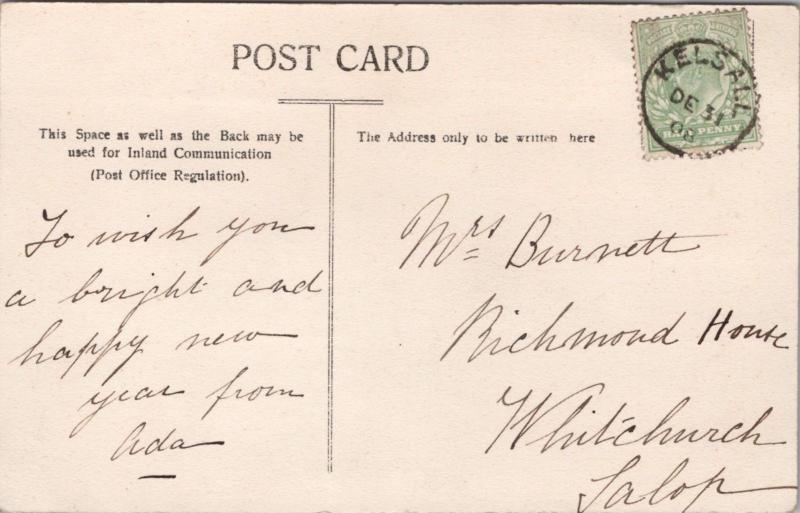 POST CARD
This Space as well as the Back may be
used for Inland Communication
(Post Office Regulation).
To wish you
a bright and
happy new
year from
Ada
The Address only to be written here
KELSALL
DE 31
HALF PENNY
Mrs Burnett
Richmond House
Whitchurch
Salop